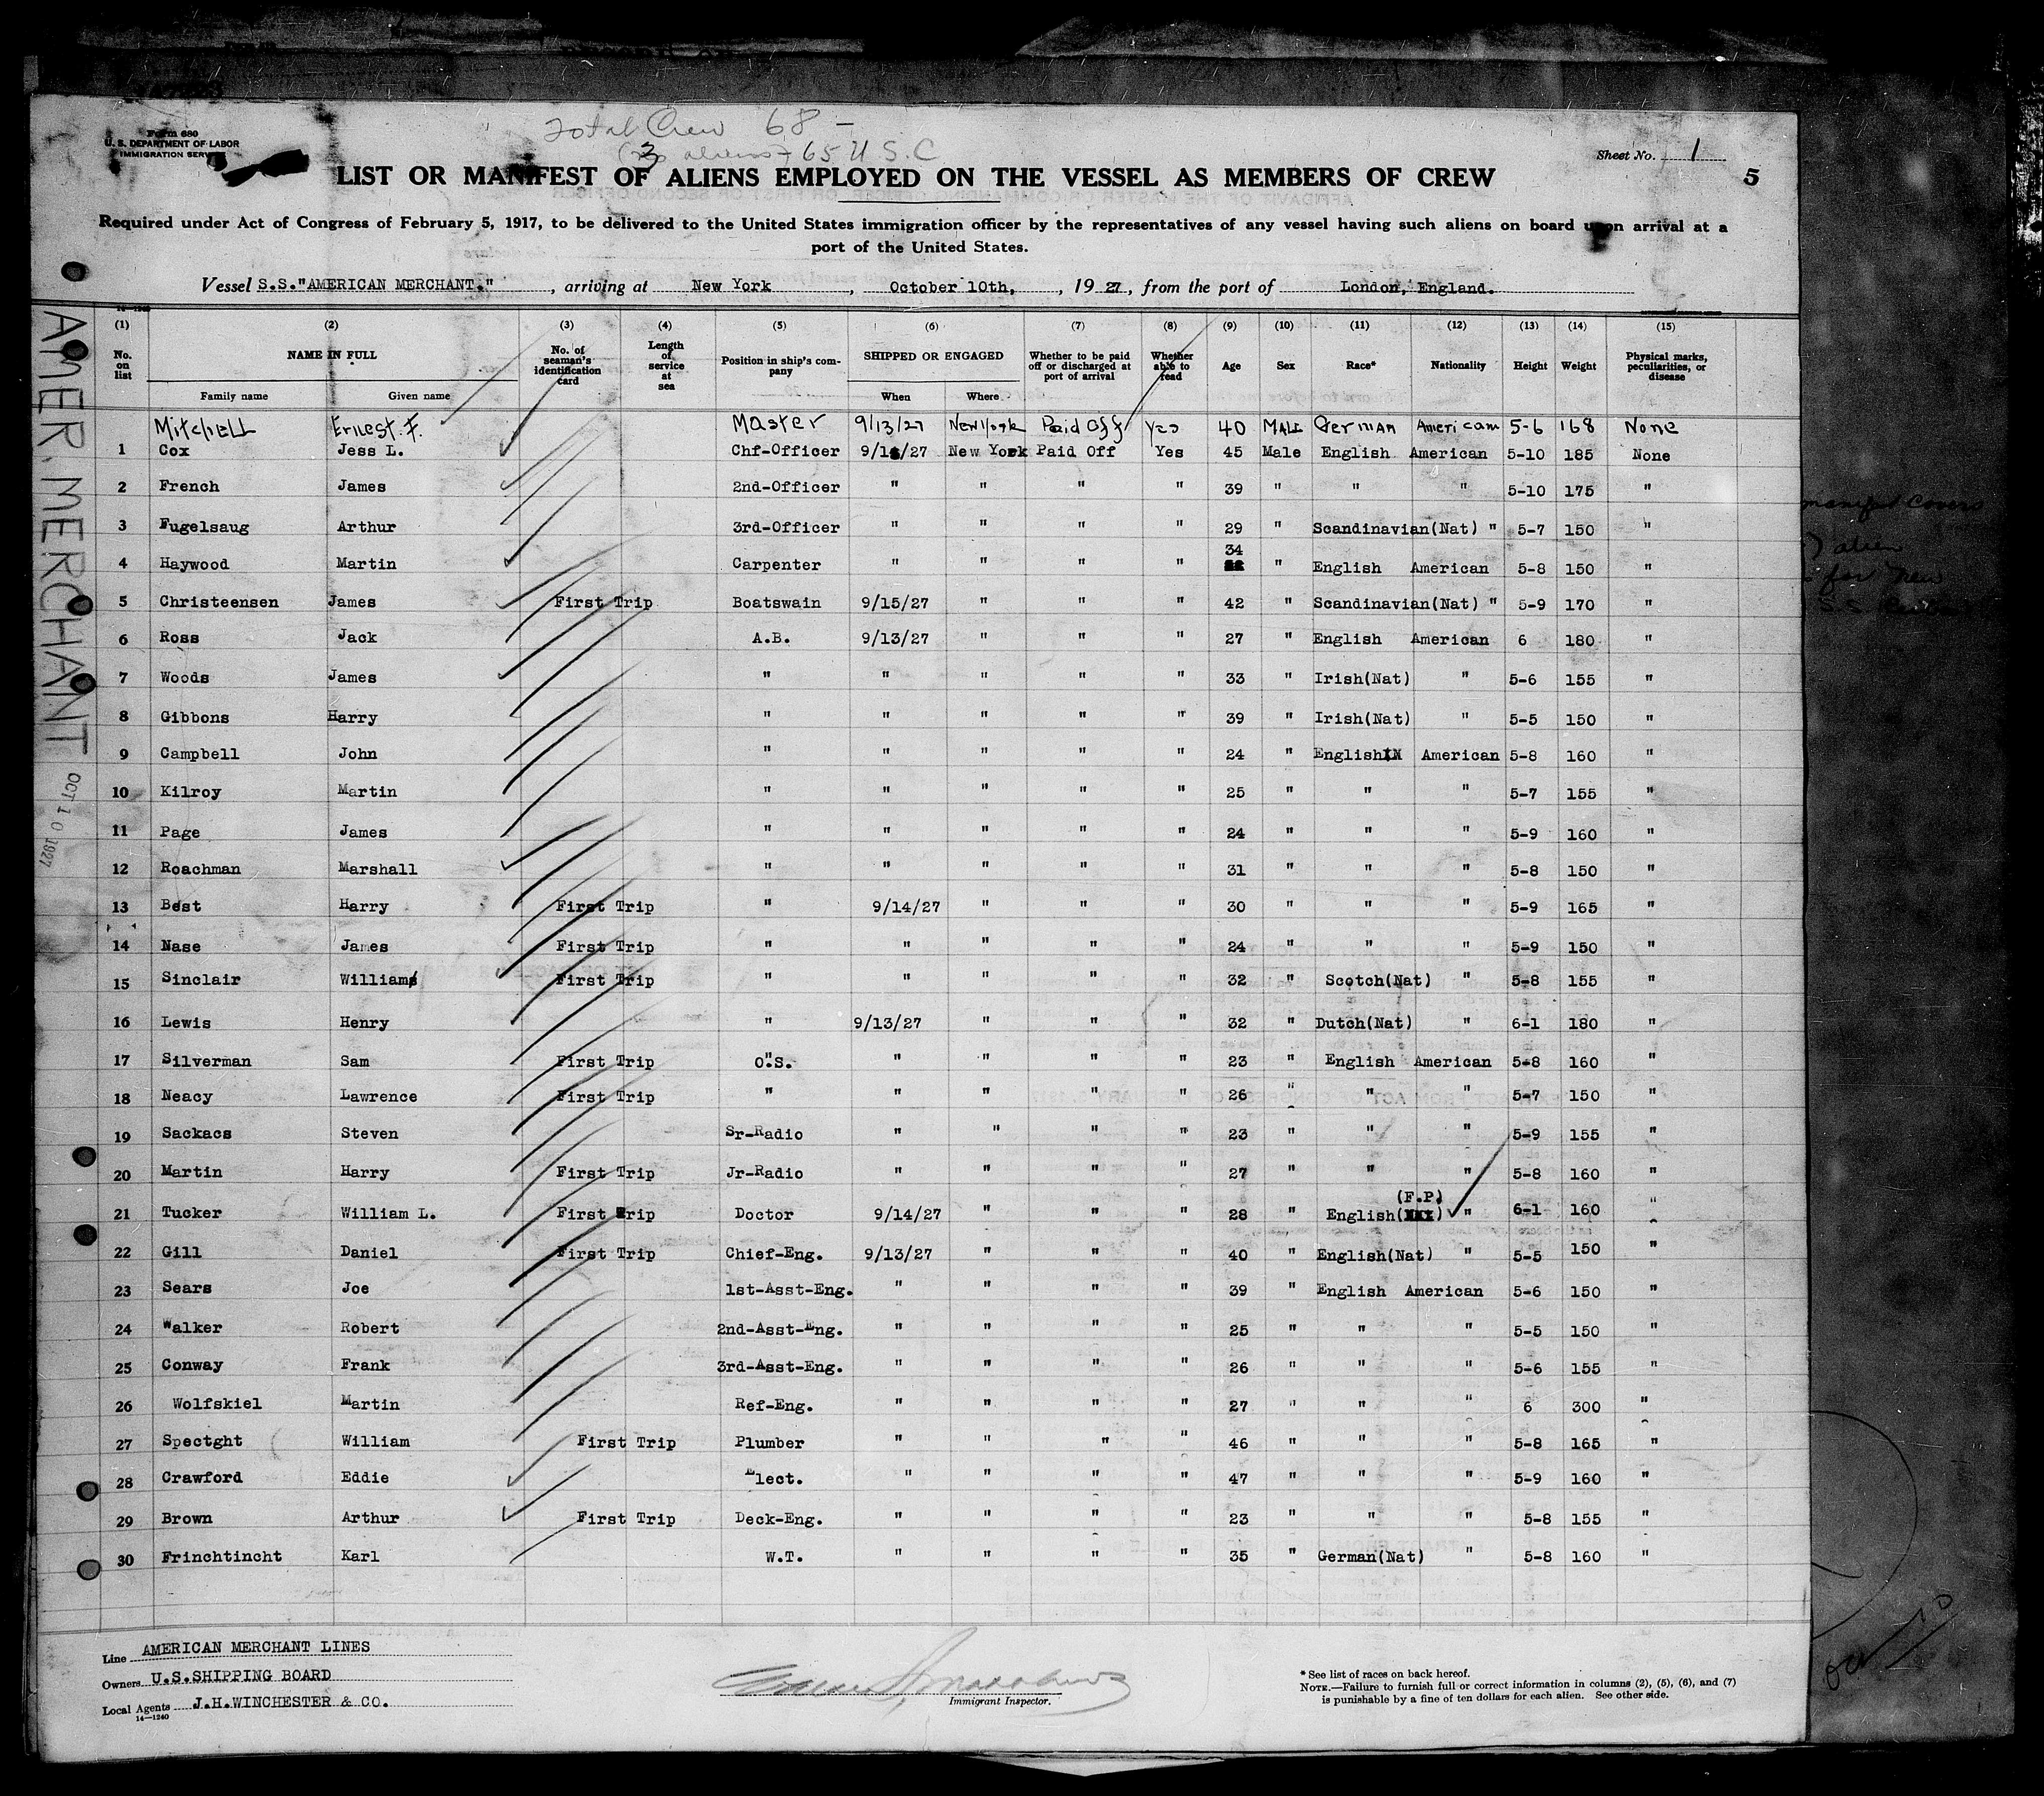 Total Crew 68 —
(3 aliens) 65 U S.C
Form 680
U. S. DEPARTMENT OF LABOR
IMMIGRATION SERV
Sheet No. 1
LIST OR MANIFEST OF ALIENS EMPLOYED ON THE VESSEL AS MEMBERS OF CREW
5
Required under Act of Congress of February 5, 1917, to be delivered to the United States immigration officer by the representatives of any vessel having such aliens on board upon arrival at a
port of the United States.
Vessel S.S."AMERICAN MERCHANT.", arriving at New York, October 10th,, 1927, from the port of London, England.
AMER. MERCHANT OCT 10 1927
(1) (2) (3) (4) (5) (6) (7) (8) (9) (10) (11) (12) (13) (14) (15)
No. on list NAME IN FULL No. of seaman's identification card Length of service at sea Position in ship's company SHIPPED OR ENGAGED Whether to be paid off or discharged at port of arrival Whether able to read Age Sex Race* Nationality Height Weight Physical marks, peculiarities, or disease
Family name Given name When Where
Mitchell Ernest. F. Master 9/13/27 New York Paid Off Yes 40 Male German American 5-6 168 None
1 Cox Jess L. Chf-Officer 9/13/27 New York Paid Off Yes 45 Male English American 5-10 185 None
2 French James 2nd-Officer " " " " 39 " " " 5-10 175 "
3 Fugelsaug Arthur 3rd-Officer " " " " 29 " Scandinavian(Nat) " 5-7 150 "
34
4 Haywood Martin Carpenter " " " " " English American 5-8 150 "
5 Christeensen James First Trip Boatswain 9/15/27 " " " 42 " Scandinavian(Nat) " 5-9 170 "
6 Ross Jack A.B. 9/13/27 " " " 27 " English American 6 180 "
7 Woods James " " " " " 33 " Irish(Nat) " 5-6 155 "
8 Gibbons Harry " " " " " 39 " Irish(Nat) " 5-5 150 "
9 Campbell John " " " " " 24 " English American 5-8 160 "
10 Kilroy Martin " " " " " 25 " " " 5-7 155 "
11 Page James " " " " " 24 " " " 5-9 160 "
12 Roachman Marshall " " " " " 31 " " " 5-8 150 "
13 Best Harry First Trip " 9/14/27 " " " 30 " " " 5-9 165 "
14 Nase James First Trip " " " " " 24 " " " 5-9 150 "
15 Sinclair William First Trip " " " " " 32 " Scotch(Nat) " 5-8 155 "
16 Lewis Henry " 9/13/27 " " " 32 " Dutch(Nat) " 6-1 180 "
17 Silverman Sam First Trip O.S. " " " " 23 " English American 5-8 160 "
18 Neacy Lawrence First Trip " " " " " 26 " " " 5-7 150 "
19 Sackacs Steven Sr-Radio " " " " 23 " " " 5-9 155 "
20 Martin Harry First Trip Jr-Radio " " " " 27 " " " 5-8 160 "
(F.P.)
21 Tucker William L. First Trip Doctor 9/14/27 " " " 28 " English( ) " 6-1 160 "
22 Gill Daniel First Trip Chief-Eng. 9/13/27 " " " 40 " English(Nat) " 5-5 150 "
23 Sears Joe 1st-Asst-Eng. " " " " 39 " English American 5-6 150 "
24 Walker Robert 2nd-Asst-Eng. " " " " 25 " " " 5-5 150 "
25 Conway Frank 3rd-Asst-Eng. " " " " 26 " " " 5-6 155 "
26 Wolfskiel Martin Ref-Eng. " " " " 27 " " " 6 300 "
27 Spectght William First Trip Plumber " " " " 46 " " " 5-8 165 "
28 Crawford Eddie Elect. " " " " 47 " " " 5-9 160 "
29 Brown Arthur First Trip Deck-Eng. " " " " 23 " " " 5-8 155 "
30 Frinchtincht Karl W.T. " " " " 35 " German(Nat) " 5-8 160 "
Line AMERICAN MERCHANT LINES
Owners U.S.SHIPPING BOARD
Local Agents J.H.WINCHESTER & CO.
14—1240
Immigrant Inspector.
* See list of races on back hereof.
NOTE.—Failure to furnish full or correct information in columns (2), (5), (6), and (7)
is punishable by a fine of ten dollars for each alien. See other side.
manifest covers
alien
for new
Oct 10